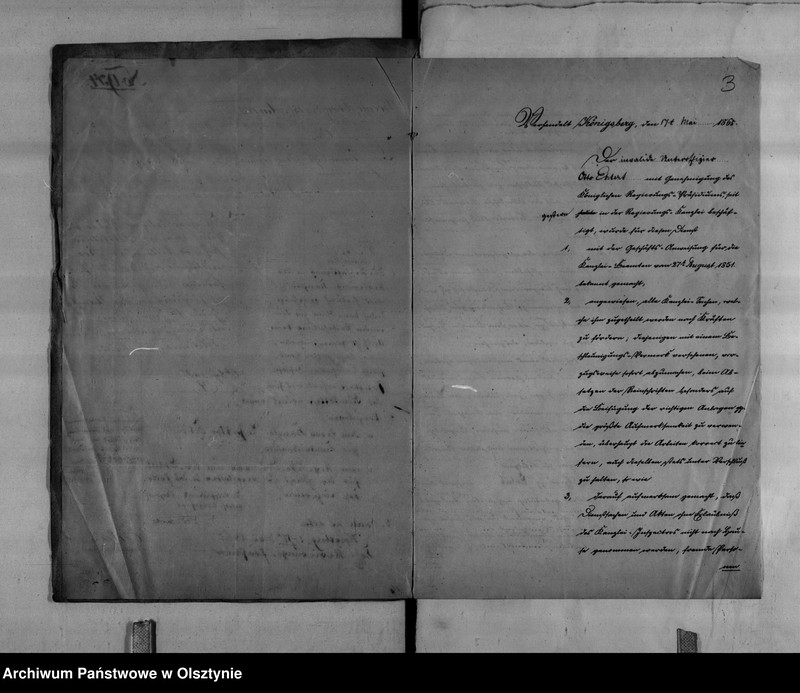 3
Verhandelt Königsberg, den 17t Mai 186
Der invalide Unteroffizier
Otto mit Genehmigung des
Königlichen Regierungs-Präsidiums, seit
gestern in der Regierungs-Kanzlei beschäf-
tigt, wurde für diesen Dienst
1, mit der Geschäfts-Anweisung für die
Kanzlei-Beamten vom 27t August 1851.
bekannt gemacht,
2, angewiesen, alle Kanzlei-Sachen, wel-
che ihm zugetheilt werden nach Kräften
zu fördern, diejenigen mit einem Be-
schleunigungs-Vermerk versehenen, vor-
zugsweise sofort abzumachen, beim Ab-
setzen der Reinschriften besonders auf
die Beifügung der richtigen Anlagen pp
die größte Aufmerksamkeit zu verwen-
den, überhaupt die Arbeiten korrekt zu lie-
fern, auch dieselben stets unter Verschluß
zu halten, so wie
3, darauf aufmerksam gemacht, daß
Dienstsachen und Akten ohne Erlaubniß
des Kanzlei-Inspectors nicht nach Hau-
se genommen werden, fremde Perso-
nen
Archiwum Państwowe w Olsztynie